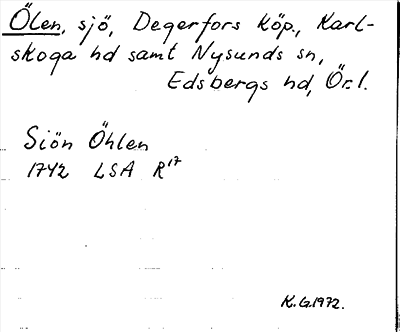 Ölen, sjö, Degerfors köp., Karl-
skoga hd samt Nysunds sn,
Edsbergs hd, Ör.l.
Siön Öhlen
1742 LSA R17
K.G.1972.